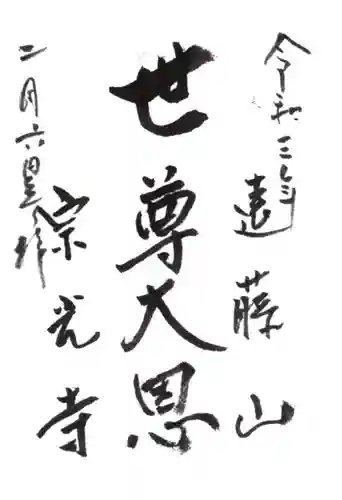 令和三年
遠藤山
世尊大恩
宗光寺
二月六日